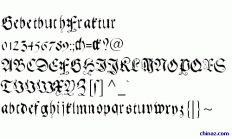 GebetbuchFraktur
0123456789:;‹=›?@
ABCDEFGHIJKLMNOPQRS
TUVWXYZ[\]^_`
abcdefghijklmnopqrstuvwxyz{|}~
chinaz.com